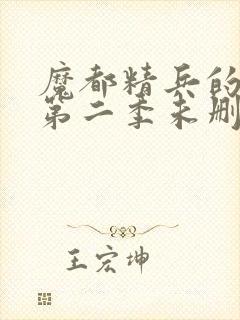 魔都精兵的
第二季未删
王宏坤